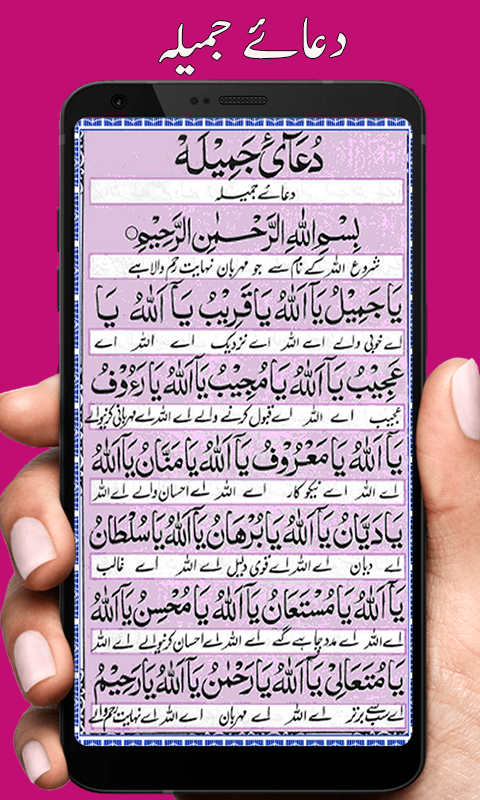 دعائے جمیلہ
دُعَآئِ جَمِیْلَهْ
دعائے جمیلہ
بِسْمِ اللّٰهِ الرَّحْمٰنِ الرَّحِیْمِ
شروع اللہ کے نام سے جو مہربان نہایت رحم والا ہے
یَا جَمِیْلُ یَآ اَللّٰهُ یَا قَرِیْبُ یَآ اَللّٰهُ یَا
اے خوبی والے اے اللہ اے نزدیک اے اللہ اے
عَجِیْبُ یَآ اَللّٰهُ یَا مُجِیْبُ یَآ اَللّٰهُ یَا رَءُوْفُ
عجیب اے اللہ اے قبول کرنے والے اے اللہ اے مہربانی کرنیوالے
یَآ اَللّٰهُ یَا مَعْرُوْفُ یَآ اَللّٰهُ یَا مَنَّانُ یَآ اَللّٰهُ
اے اللہ اے نیکو کار اے اللہ اے احسان والے اے اللہ
یَا دَیَّانُ یَآ اَللّٰهُ یَا بُرْهَانُ یَآ اَللّٰهُ یَا سُلْطَانُ
اے دیان اے اللہ اے قوی دلیل اے اللہ اے غالب
یَآ اَللّٰهُ یَا مُسْتَعَانُ یَآ اَللّٰهُ یَا مُحْسِنُ یَآ اَللّٰهُ
اے اللہ اے مدد چاہے گئے اے اللہ اے احسان کرنیوالے اے اللہ
یَا مُتَعَالِیْ یَآ اَللّٰهُ یَا رَحْمٰنُ یَآ اَللّٰهُ یَا رَحِیْمُ
اے سب سے برتر اے اللہ اے مہربان اے اللہ اے نہایت رحم والے